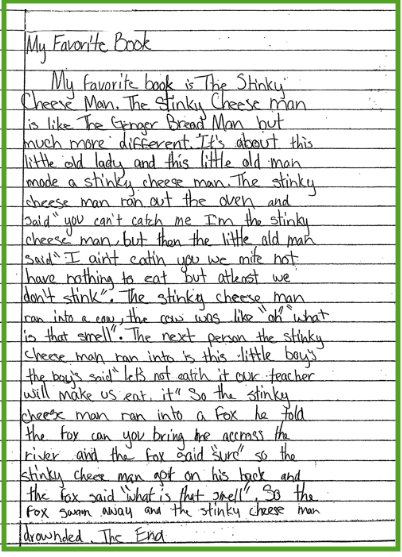 My Favorite Book
My favorite book is The Stinky
Cheese Man. The Stinky Cheese man
is like The Ginger Bread Man but
much more different. It's about this
little old lady and this little old man
made a stinky cheese man. The stinky
cheese man ran out the oven and
said "you can't catch me I'm the stinky
cheese man, but then the little old man
said "I aint eatin you we mite not
have nothing to eat but atleast we
don't stink". The stinky cheese man
ran into a cow, the cow was like "oh" "what
is that smell". The next person the stinky
cheese man ran into is this little boy's
the boy's said "let's not catch it our teacher
will make us eat it" So the stinky
cheese man ran into a fox he told
the fox can you bring me accross the
river and the fox said "sure" so the
stinky cheese man got on his back and
the fox said "what is that smell". So the
fox swam away and the stinky cheese man
drownded. The End